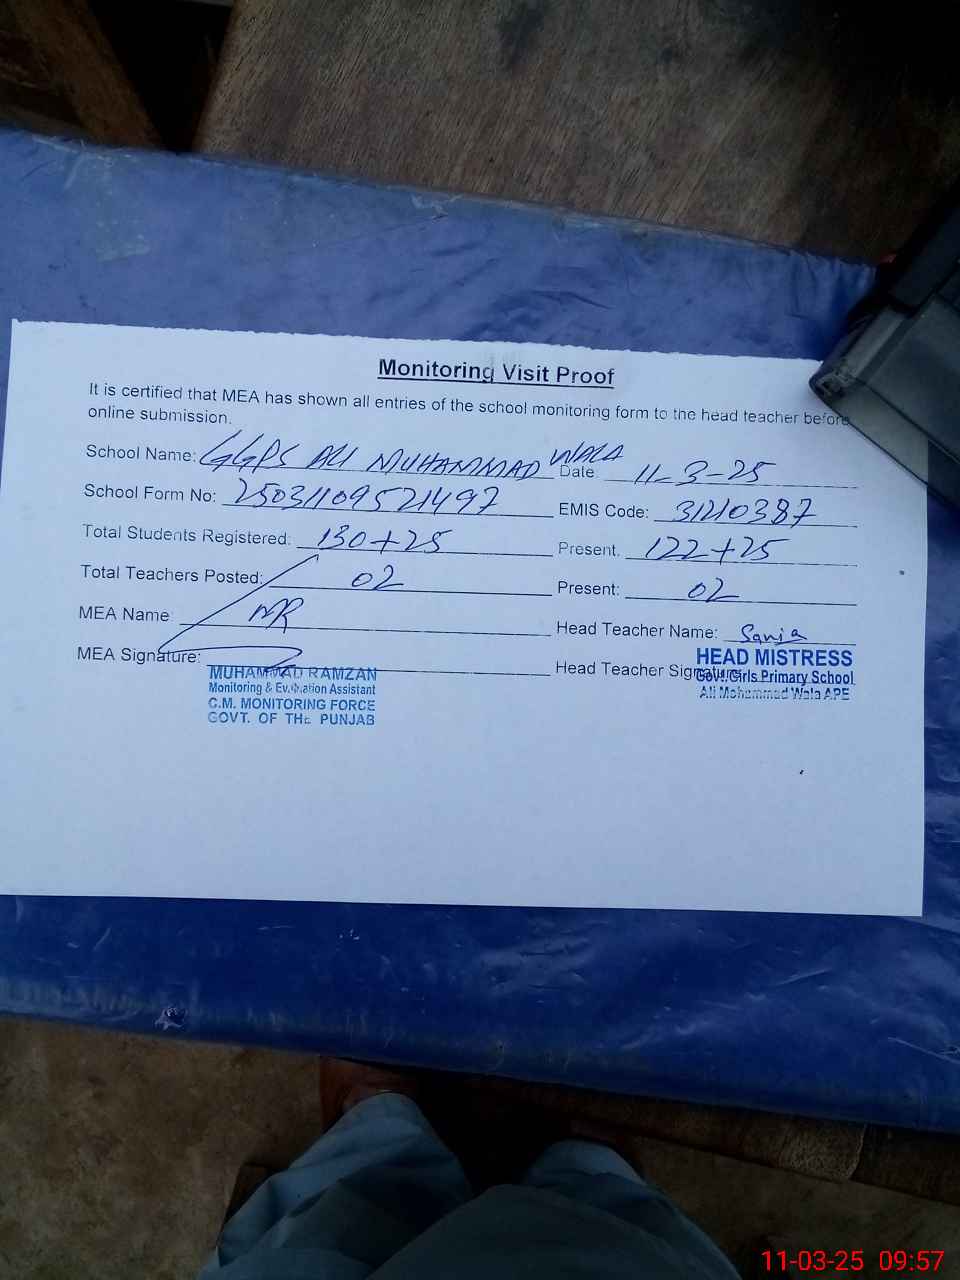 Monitoring Visit Proof
It is certified that MEA has shown all entries of the school monitoring form to the head teacher before
online submission.
School Name: GGPS ALI MUHAMMAD WALA Date: 11-3-25
School Form No: 25031109521497 EMIS Code: 31210387
Total Students Registered: 130+25 Present. 122+25
Total Teachers Posted: 02 Present: 02
MEA Name: MR Head Teacher Name: Sania
MEA Signature: Head Teacher Signature:
MUHAMMAD RAMZAN
Monitoring & Evaluation Assistant
C.M. MONITORING FORCE
GOVT. OF THE PUNJAB
HEAD MISTRESS
Govt. Girls Primary School
Ali Mohammad Wala APE
11-03-25 09:57